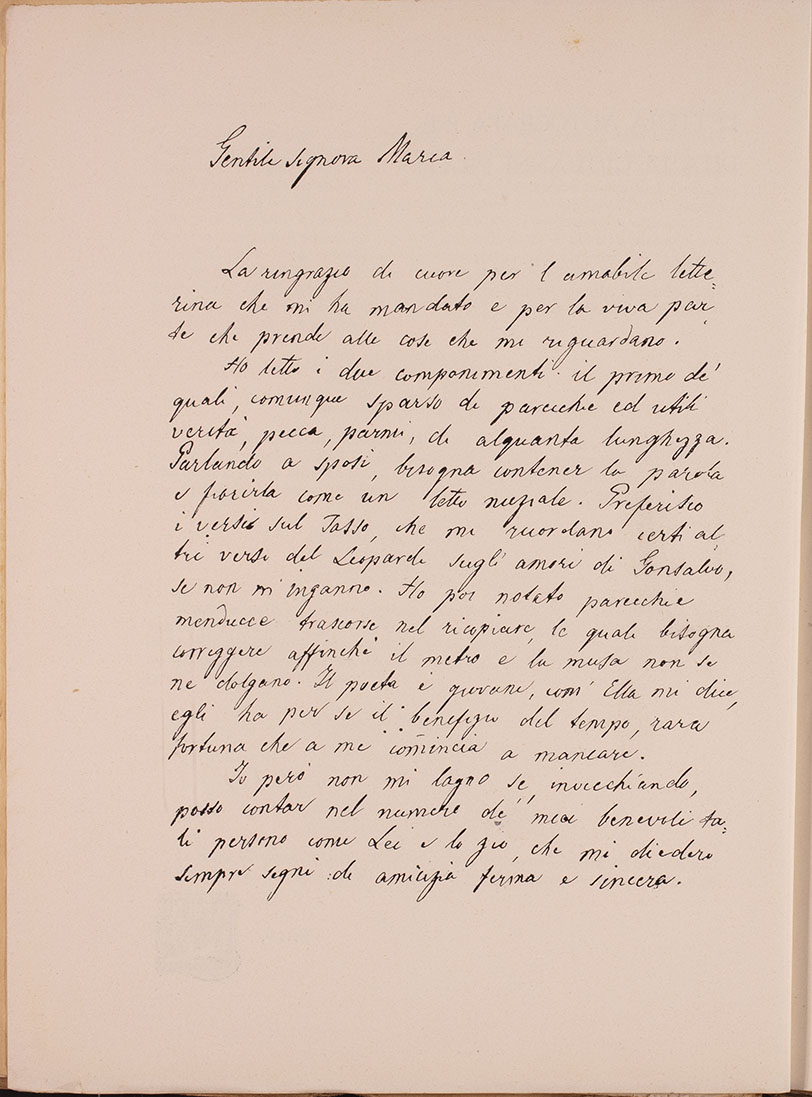 Gentile signora Maria.
La ringrazio di cuore per l'amabile lette=
rina che mi ha mandato e per la viva par,
te che prende alle cose che mi riguardano.
Ho letto i due componimenti: il primo de'
quali, comunque sparso di parecchie ed utili
verità, pecca, parmi, di alquanta lunghezza.
Parlando a sposi, bisogna contener la parola
e fiorirla come un letto nuziale. Preferisco
i versi sul Tasso, che mi ricordano certi al,
tri versi del Leopardi sugli amori di Gonsalvo,
se non mi inganno. Ho poi notato parecchie
menducce trascorse nel ricopiare, le quali bisogna
correggere affinchè il metro e la musa non se
ne dolgano. Il poeta è giovane, com' Ella mi dice,
egli ha per se il benefizio del tempo, rara
fortuna che a me comincia a mancare.
Io però non mi lagno se, invecchiando,
posso contar nel numero de' miei benevoli ta=
li persone come Lei e lo zio, che mi diedero
sempre segni di amicizia ferma e sincera.